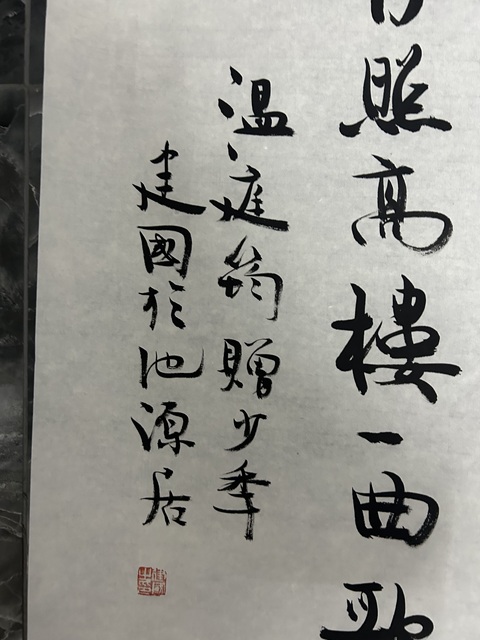 照高樓一曲歌
温庭筠贈少年
建國於池源居